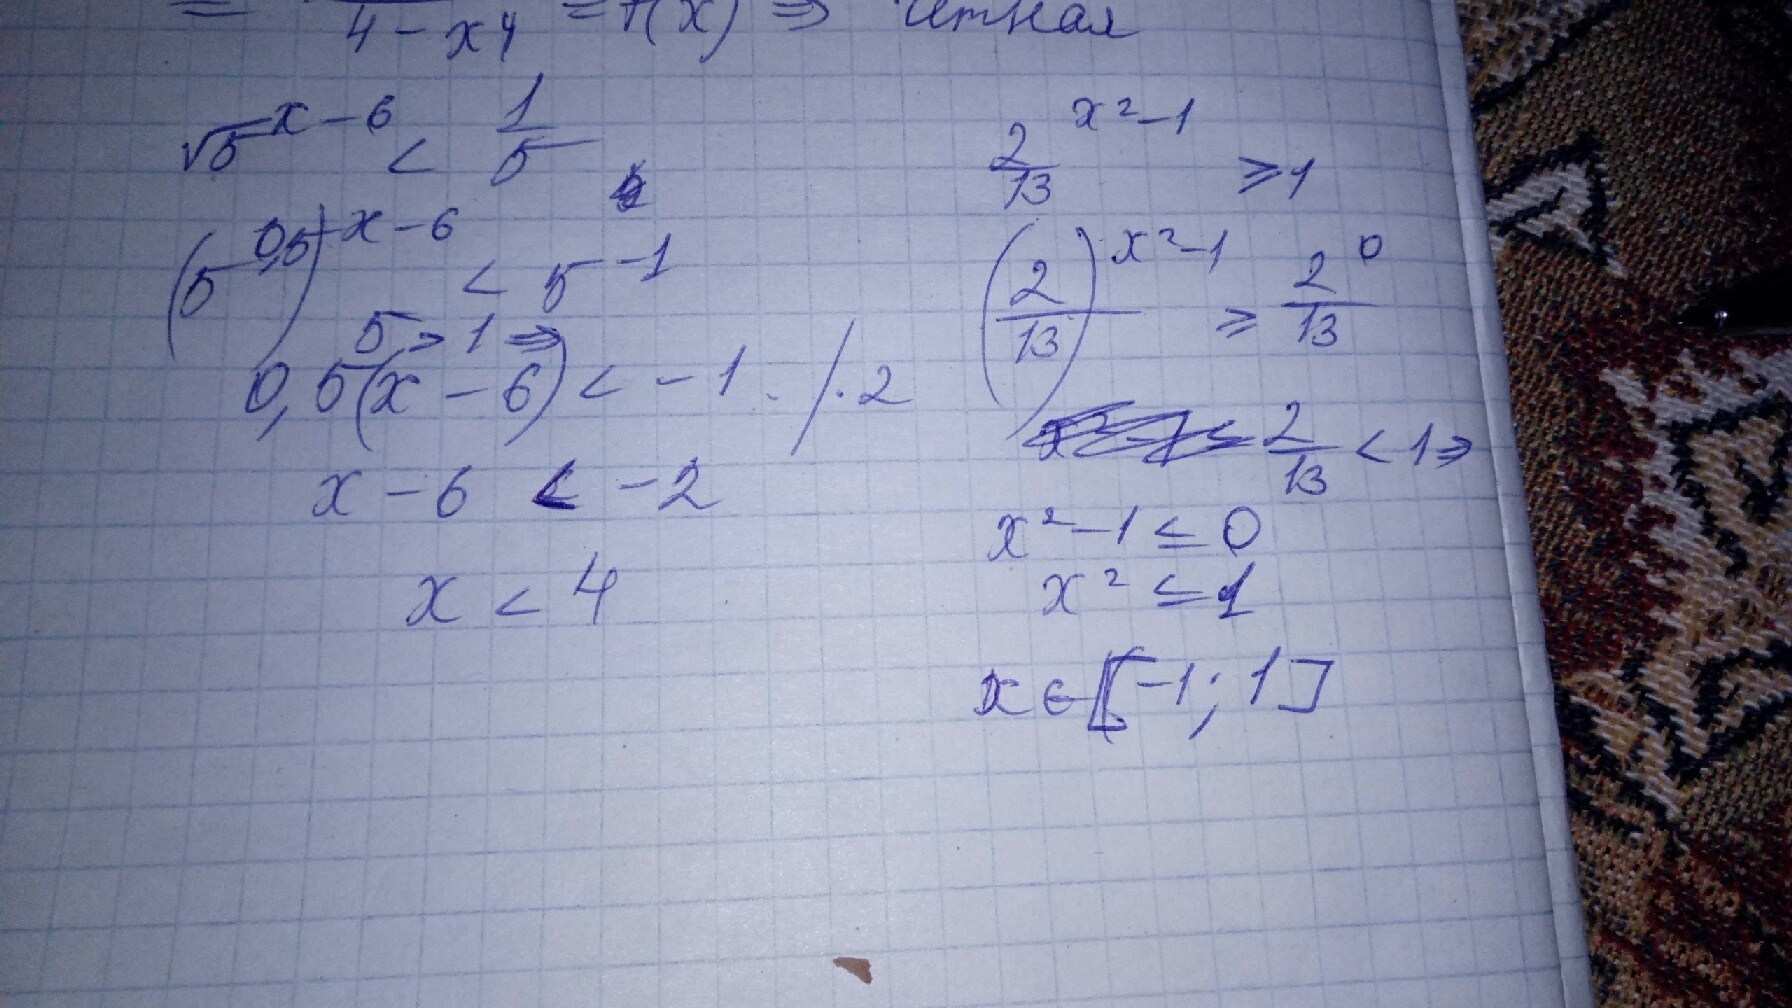 = 4 - x⁴ = f(x) ⇒ четная
√5^(x-6) < 1/5
(5^0,5)^(x-6) < 5^-1
5 > 1 ⇒
0,5(x - 6) < -1 . / · 2
x - 6 < -2
x < 4
2/13^(x²-1) ≥ 1
(2/13)^(x²-1) ≥ 2/13^0
2/13 < 1 ⇒
x² - 1 ≤ 0
x² ≤ 1
x ∈ [-1; 1]